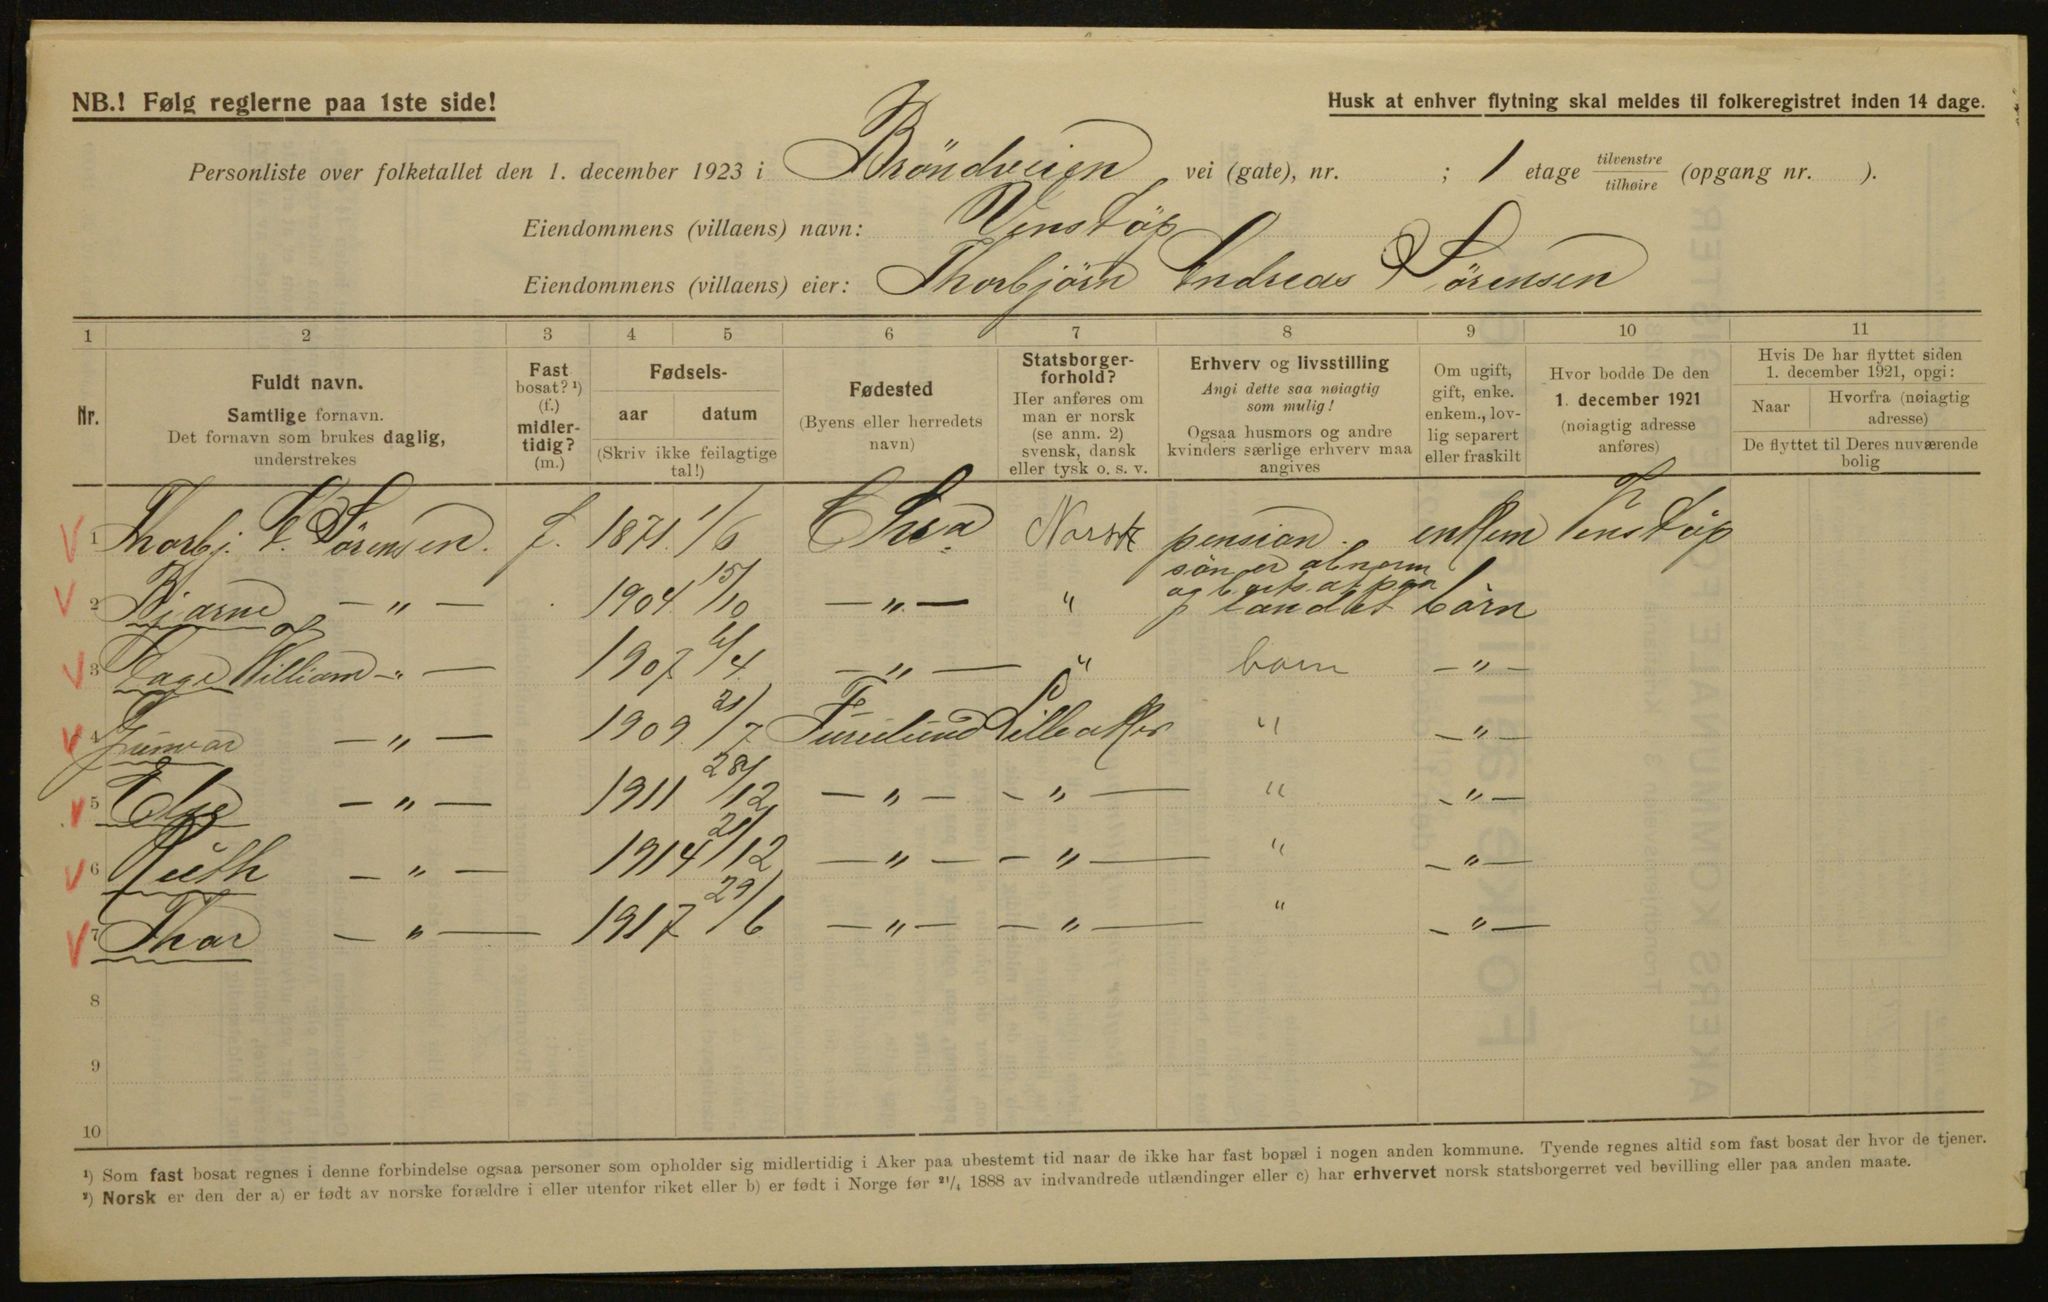 NB.! Følg reglerne paa 1ste side!
Husk at enhver flytning skal meldes til folkeregistret inden 14 dage.
Personliste over folketallet den 1. december 1923 i Bröndveien vei (gate), nr. ; 1 etage tilvenstre tilhøire (opgang nr. ).
Eiendommens (villaens) navn: Venstöp
Eiendommens (villaens) eier: Thorbjörn Andreas Sörensen
1 2 3 4 5 6 7 8 9 10 11
Nr.
Fuldt navn.
Samtlige fornavn.
Det fornavn som brukes daglig,
understrekes
Fast
bosat? ¹)
(f.)
midler-
tidig?
(m.)
Fødsels-
aar datum
(Skriv ikke feilagtige
tal!)
Fødested
(Byens eller herredets
navn)
Statsborger-
forhold?
Her anføres om
man er norsk
(se anm. 2)
svensk, dansk
eller tysk o. s. v.
Erhverv og livsstilling
Angi dette saa nøiagtig
som mulig!
Ogsaa husmors og andre
kvinders særlige erhverv maa
angives
Om ugift,
gift, enke.
enkem., lov-
lig separert
eller fraskilt
Hvor bodde De den
1. december 1921
(nøiagtig adresse
anføres)
Hvis De har flyttet siden
1. december 1921, opgi:
Naar
Hvorfra (nøiagtig
adresse)
De flyttet til Deres nuværende
bolig
1 Thorbj. Sörensen. f. 1871. 1/6 Norsk pension. enkem Venstöp
sön er abnorm
2 Bjarne — " — 1904 15/10 — " — " og bortsat paa landet börn
3 Tage William — " — 1907 /4 — " — " barn — " —
4 Gunvor — " — 1909 21/7 Furulund Lilleaker " — " —
5 Else — " — 1911 28/12 — " — — " — " — " —
6 Ruth — " — 1914 21/12 — " — — " — " — " —
7 Thor — " — 1917 29/6 — " — — " — " — " —
8
9
10
¹) Som fast bosat regnes i denne forbindelse ogsaa personer som opholder sig midlertidig i Aker paa ubestemt tid naar de ikke har fast bopæl i nogen anden kommune. Tyende regnes altid som fast bosat der hvor de tjener.
²) Norsk er den der a) er født av norske forældre i eller utenfor riket eller b) er født i Norge før 21/4 1888 av indvandrede utlændinger eller c) har erhvervet norsk statsborgerret ved bevilling eller paa anden maate.